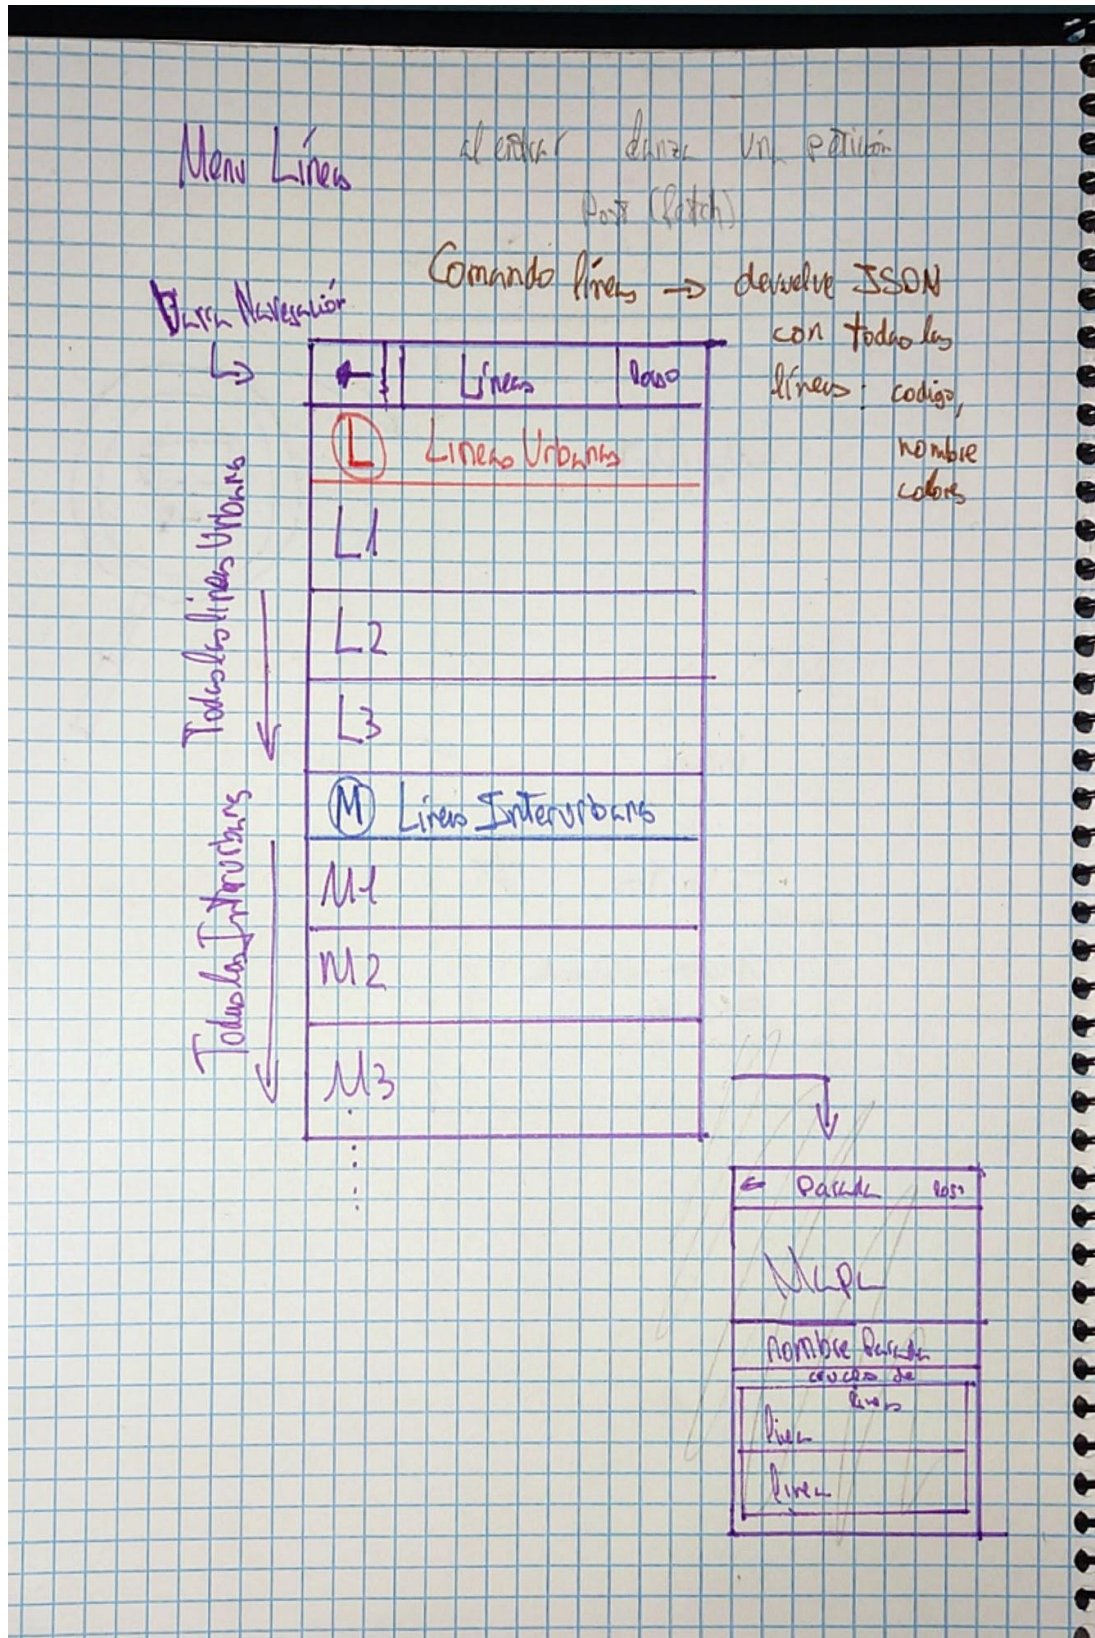 Menu Líneas
al entrar lanza un petición
Post (fetch)
Comando líneas → devuelve JSON
con todas las
líneas: codigo,
nombre
colores
Barra Navegación
← Líneas logo
L Lineas Urbanas
L1
L2
L3
Todas las líneas Urbanas
M Líneas Interurbanas
M1
M2
M3
Todas las Interurbanas
← Parada logo
Mapa
nombre Parada
cruces de
líneas
línea
línea